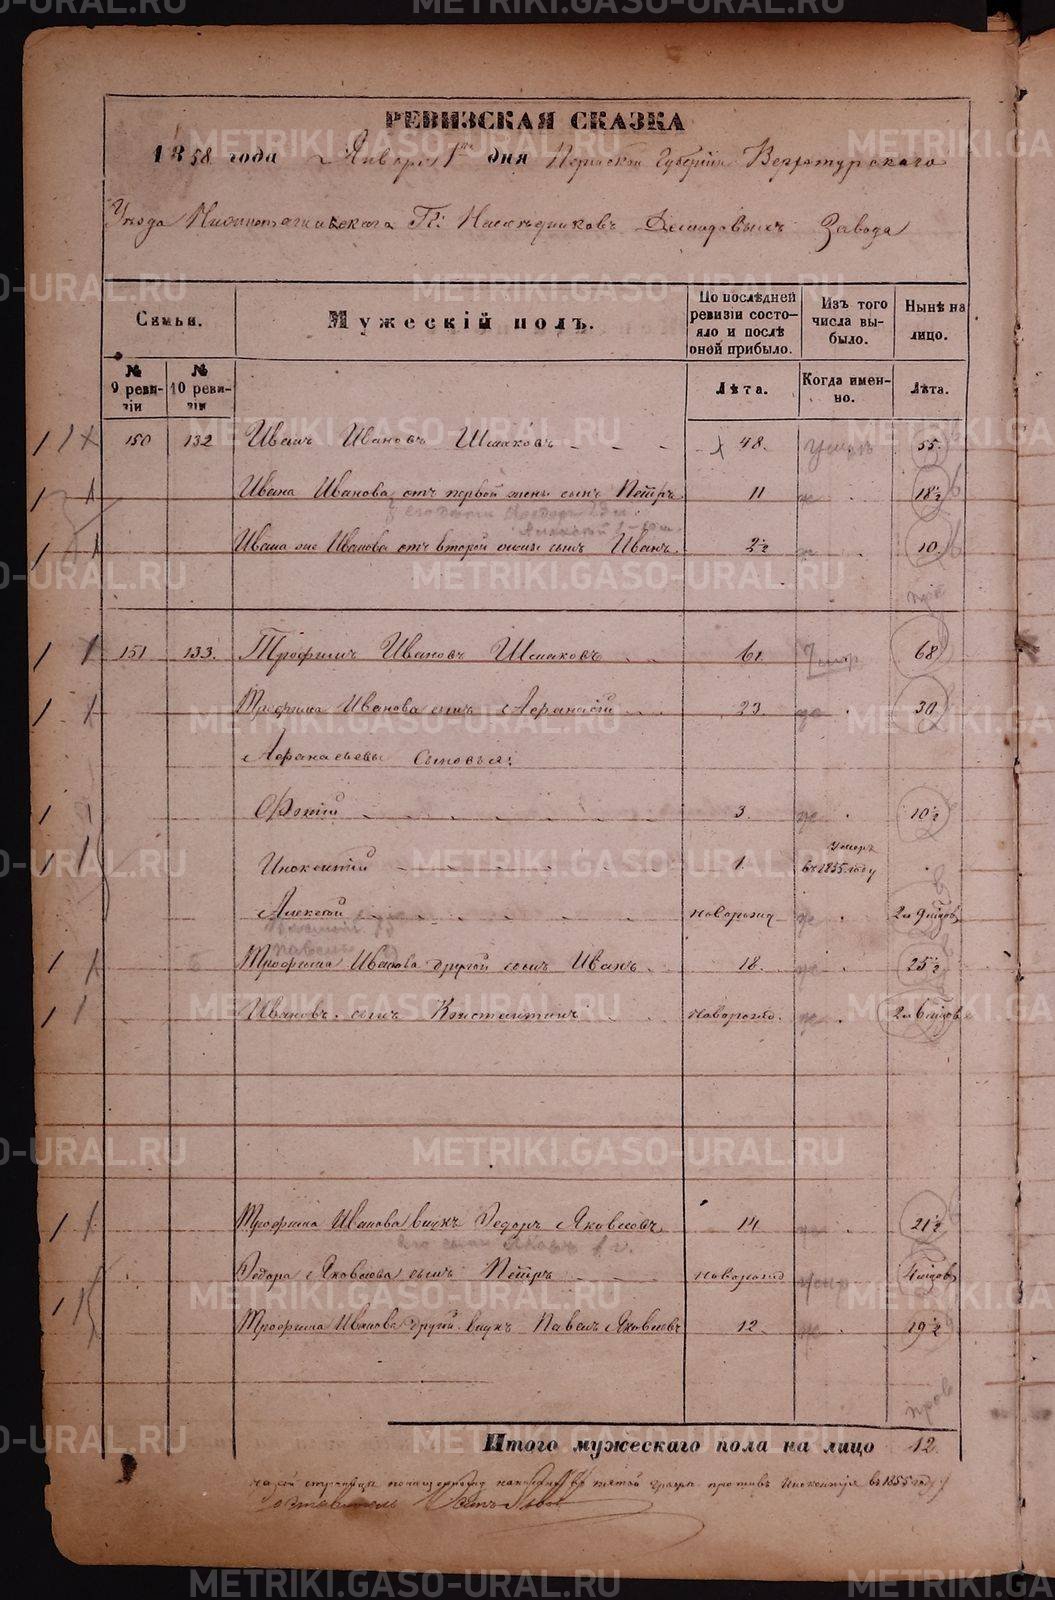 РЕВИЗСКАЯ СКАЗКА
1858 года Января 1го дня Пермской Губернии Верхотурскаго
Уезда Нижнотагильскаго Гг. Наследниковъ Демидовыхъ Завода
Семьи.
№ 9 ревизіи
№ 10 ревизіи
Мужескій полъ.
По послѣдней ревизіи состояло и послѣ оной прибыло.
Лѣта.
Изъ того числа выбыло.
Когда именно.
Нынѣ на лицо.
Лѣта.
150 132 Иванъ Ивановъ Шмаковъ 48. умеръ 55.
Ивана Иванова отъ первой жены сынъ Петръ 11 18½
Ивана же Иванова отъ второй жены сынъ Иванъ 2½ 10.
151 133. Трофимъ Ивановъ Шмаковъ 61. умер 68
Трофима Иванова сынъ Афанасій 23. 30
Афанасьевы сыновья:
Фокій 3. 10½
Инокентій 1. Умеръ въ 1855 году
Алексѣй новорожд 2 и 9 мѣсяцов
Трофима Иванова другой сынъ Иванъ 18. 25½
Ивановъ сынъ Константинъ новорожд. 2 и 6 мѣсяцов
Трофима Иванова внукъ Федоръ Яковлевъ 14 21½
Федора Яковлева сынъ Петръ новорожд умер 4 мѣсяцов
Трофима Иванова другой внукъ Павелъ Яковлевъ 12. 19½
Итого мужескаго пола на лицо 12.
на сей страницѣ в пятой графѣ противъ Инокентія въ 1855 году
METRIKI.GASO-URAL.RU